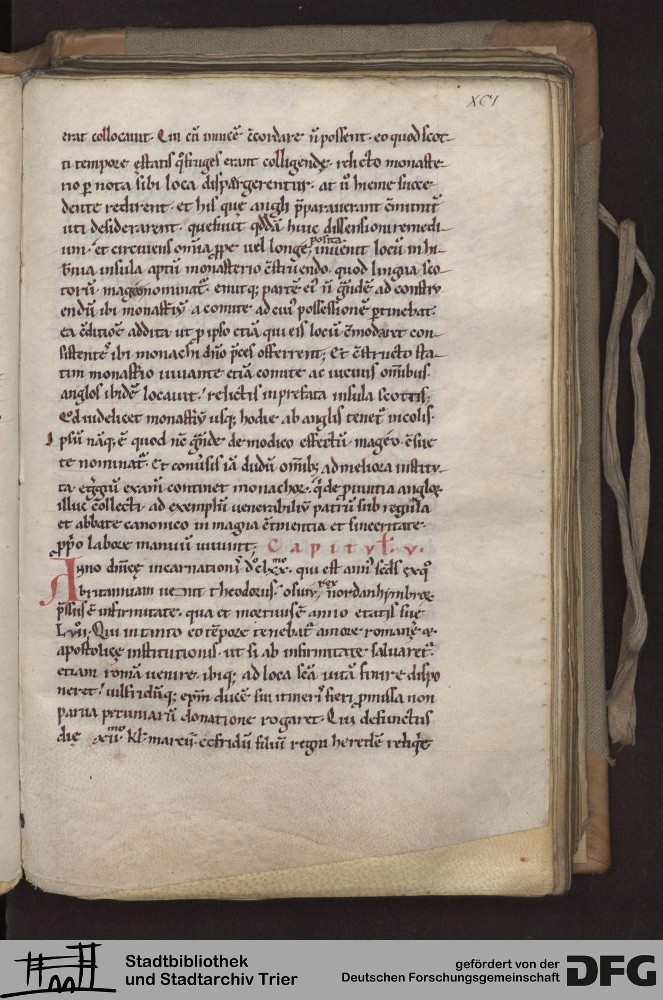 XCI
erat collocavit. Qui cū inuicē c̄cordare ñ possent. eo quod scot-
ti tempore estatis q̄ fruges erant colligendę. relicto monaste-
rio ꝑ nota sibi loca dispargerentur. at ū hieme succe-
dente redirent. et his quę angli p̄parauerant cōmunit̄
uti desiderarent. quesiuit q̄ddā huic dissensioni remedi-
um. et circuiens om̄ia ꝓpe uel longe, posita inuenit locū in hi-
b̄nia insula aptū monasterio c̄struendo. quod lingua sco-
torū mageo nominat̄. emitq; partē ei' ñ g̃ndē ad constru-
endū ibi monastīū a comite ad cui' possessionē ꝑtinebat.
ea c̄ditioē addita ut ꝓ ipso etiā qui eis locū c̄modaret con-
sistente' ibi monachi dn̄o p̄ces offerrent; Et c̄structo sta-
tim monastīo iuuante etiā comite ac uicinis om̄ibus
anglos ibidē locauit. relictis in prefata insula scottis;
Qd uidelicet monastīū usq; hodie ab anglis tenet' incolis.
Ipsū nāq; ē quod nc̄ g̃nde de modico effectū. mageo. c̄sue-
te nominat̄. et conuersis iā dudū om̄ib; ad meliora institu-
ta. egregiū examē continet monachoꝝ. q̄ de ꝓuintia angloꝝ
illuc c̄llecti. ad exemplū uenerabiliū patrū sub regula
et abbate canonico in magna c̄tinentia et sinceritate.
ꝓprio labore manuū uiuunt; Capitul. v.
Anno dn̄icę incarnationis d'clxx.mo qui est annus sc̄ds ex q̊
britanniam uenit theodorus. osuiu, rex nordanhimbroꝝ
p̄ssus ē infirmitate. qua et mortuus ē anno etatis suę
Lviii. Qui in tanto eo tēpore tenebat' amore romanę &
apostolicę institutionis. ut si ab infirmitate saluaret'.
etiam romā uenire. ibiq; ad loca sc̄a uitā finire dispo
neret. uilfridūq; ep̄m ducē sui itineris fieri ꝓmissa non
parua pecuniarū donatione rogaret. Qui defunctus
dię xv.mo kl' martii. ecfridū filiū regni heredē reliq̄t
Stadtbibliothek
und Stadtarchiv Trier
gefördert von der
Deutschen Forschungsgemeinschaft
DFG